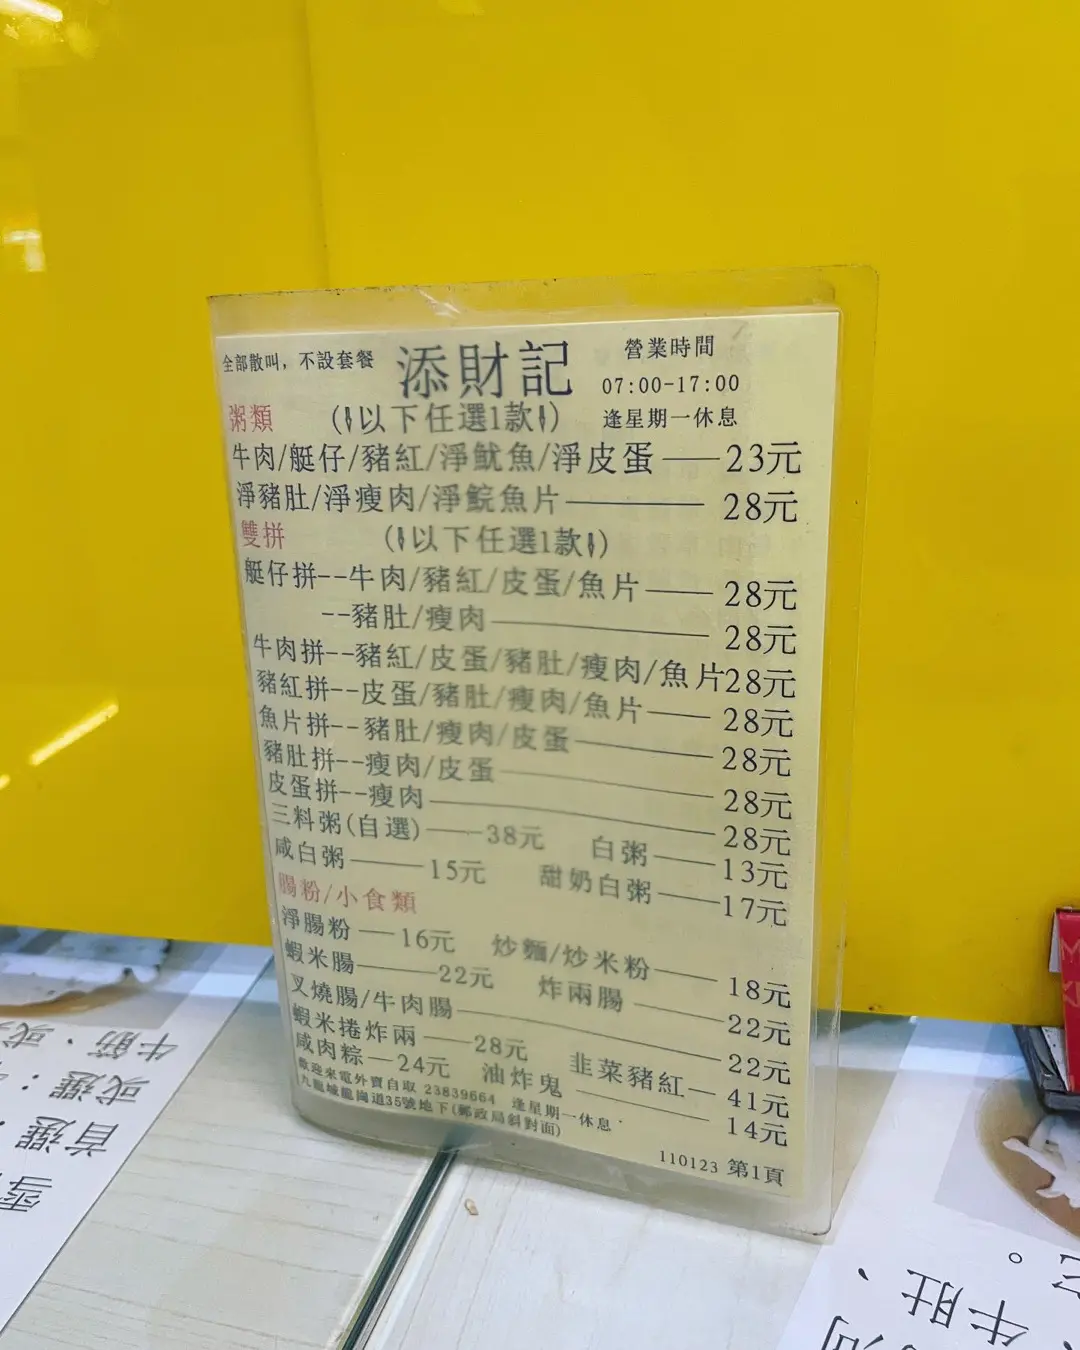 全部散叫，不設套餐 添財記 營業時間
07:00-17:00
粥類 (以下任選1款) 逢星期一休息
牛肉/艇仔/豬紅/淨魷魚/淨皮蛋 23元
淨豬肚/淨瘦肉/淨鯇魚片 28元
雙拼 (以下任選1款)
艇仔拼--牛肉/豬紅/皮蛋/魚片 28元
--豬肚/瘦肉 28元
牛肉拼--豬紅/皮蛋/豬肚/瘦肉/魚片28元
豬紅拼--皮蛋/豬肚/瘦肉/魚片 28元
魚片拼--豬肚/瘦肉/皮蛋 28元
豬肚拼--瘦肉/皮蛋 28元
皮蛋拼--瘦肉 28元
三料粥(自選) 38元 白粥 13元
咸白粥 15元 甜奶白粥 17元
腸粉/小食類
淨腸粉 16元 炒麵/炒米粉 18元
蝦米腸 22元 炸兩腸 22元
叉燒腸/牛肉腸 22元
蝦米捲炸兩 28元 韭菜豬紅 41元
咸肉粽 24元 油炸鬼 14元
歡迎來電外賣自取 23839664 逢星期一休息
九龍城龍崗道35號地下(郵政局斜對面)
110123 第1頁
牛筋、或
或選：
首選：
雪
牛肚、